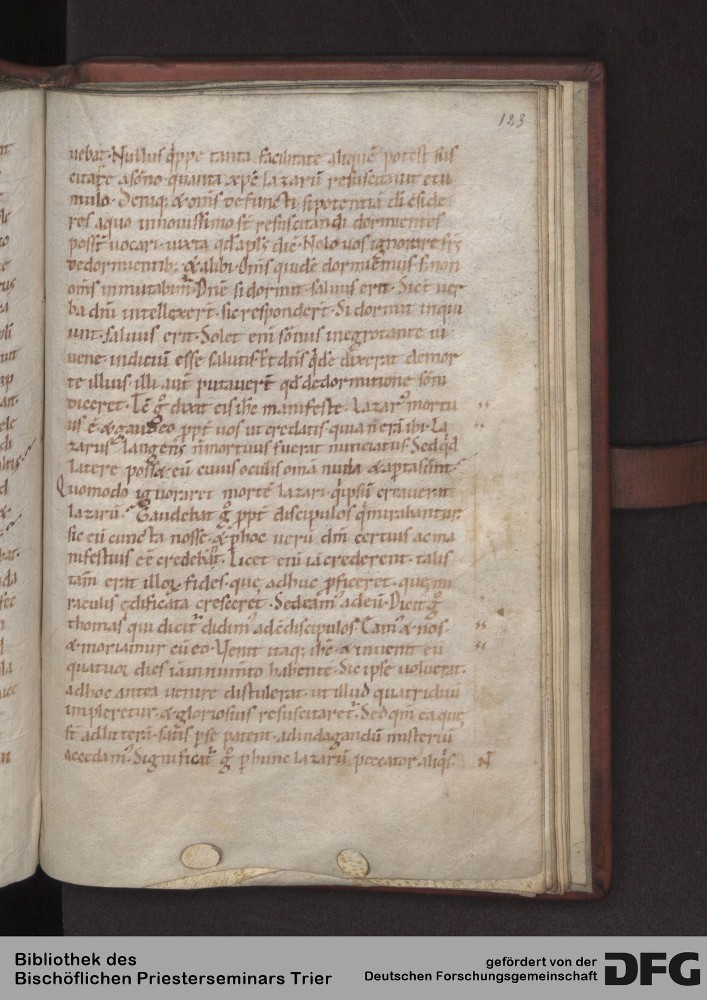 123
uebat. Nullus q̇ppe tanta facilitate aliquē potest sus
citare a sōno quanta xp̄c lazarū resuscitauit e tu
mulo. Deniq; & om̄s defuncti si potentia dī c̄side
res a quo in nouissimo st̄ resuscitandi dormientes
poss̄t uocari. iuxta qd̄ apl̄s dic̄. Nolo uos ignorare fr̄s
de dormientib;. & alibi. Om̄s quidē dormiemus. s; non
om̄s inmutabim̄. Dn̄e si dormit saluus erit. Sic ī uer
ba dn̄i intellexer̄t. sic responder̄t. Si dormit inqui
unt. saluus erit. Solet eni sōnus in egrotante in
uenc. indiciū esse salutis. Et dn̄s q̇dē dixerat de mor
te illius. illi aut̄ putauer̄t qd̄ de dormitione sōni
diceret. Tc̄ g̊ dixit eis ih̄c manifeste. Lazar᷒ mortu
us ē & gaudeo ppt̄ uos ut credatis quia n̄ erā ibi. La
zarus languens n̄ mortuus fuerat nunciatus. Sed qd̄
latere poss& eū cuius oculis om̄a nuda & apta sunt.
Quomodo ignoraret mortē lazari. q̇ ipsū creauerat
lazarū. Gaudebat g̊ ppt̄ discipulos q̇ mirabantur
sic eū cuncta nosse. & p hoc uerū dm̄ certius ac ma
nifestius eē credebāt. Licet eni iā crederent. talis
tam̄ erat illoꝝ fides. quę adhuc pficeret. quę mi
raculis ędificata cresceret. Sed eam᷒ ad eū. Dicit g̊
thomas qui dicit᷒ didim᷒ ad c̄discipulos. Eam᷒ & nos.
& moriamur cū eo. Uenit itaq; ih̄c & inuenit eū
quatuor dies iā in numto habentē. Sic ipse uoluerat.
ad hoc antea uenire distulerat. ut illud quatriduū
impleretur. & gloriosius resuscitaret᷒. Sed qm̄ ea quę
st̄ ad litterā satis p se patent. ad indagandū misteriū
accedam᷒. Significat᷒ g̊ p hunc lazarū peccator aliq̇s. N
Bibliothek des
Bischöflichen Priesterseminars Trier
gefördert von der
Deutschen Forschungsgemeinschaft
DFG